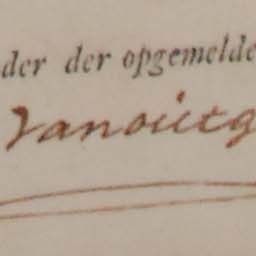 der der opgemelde
Vanoutg